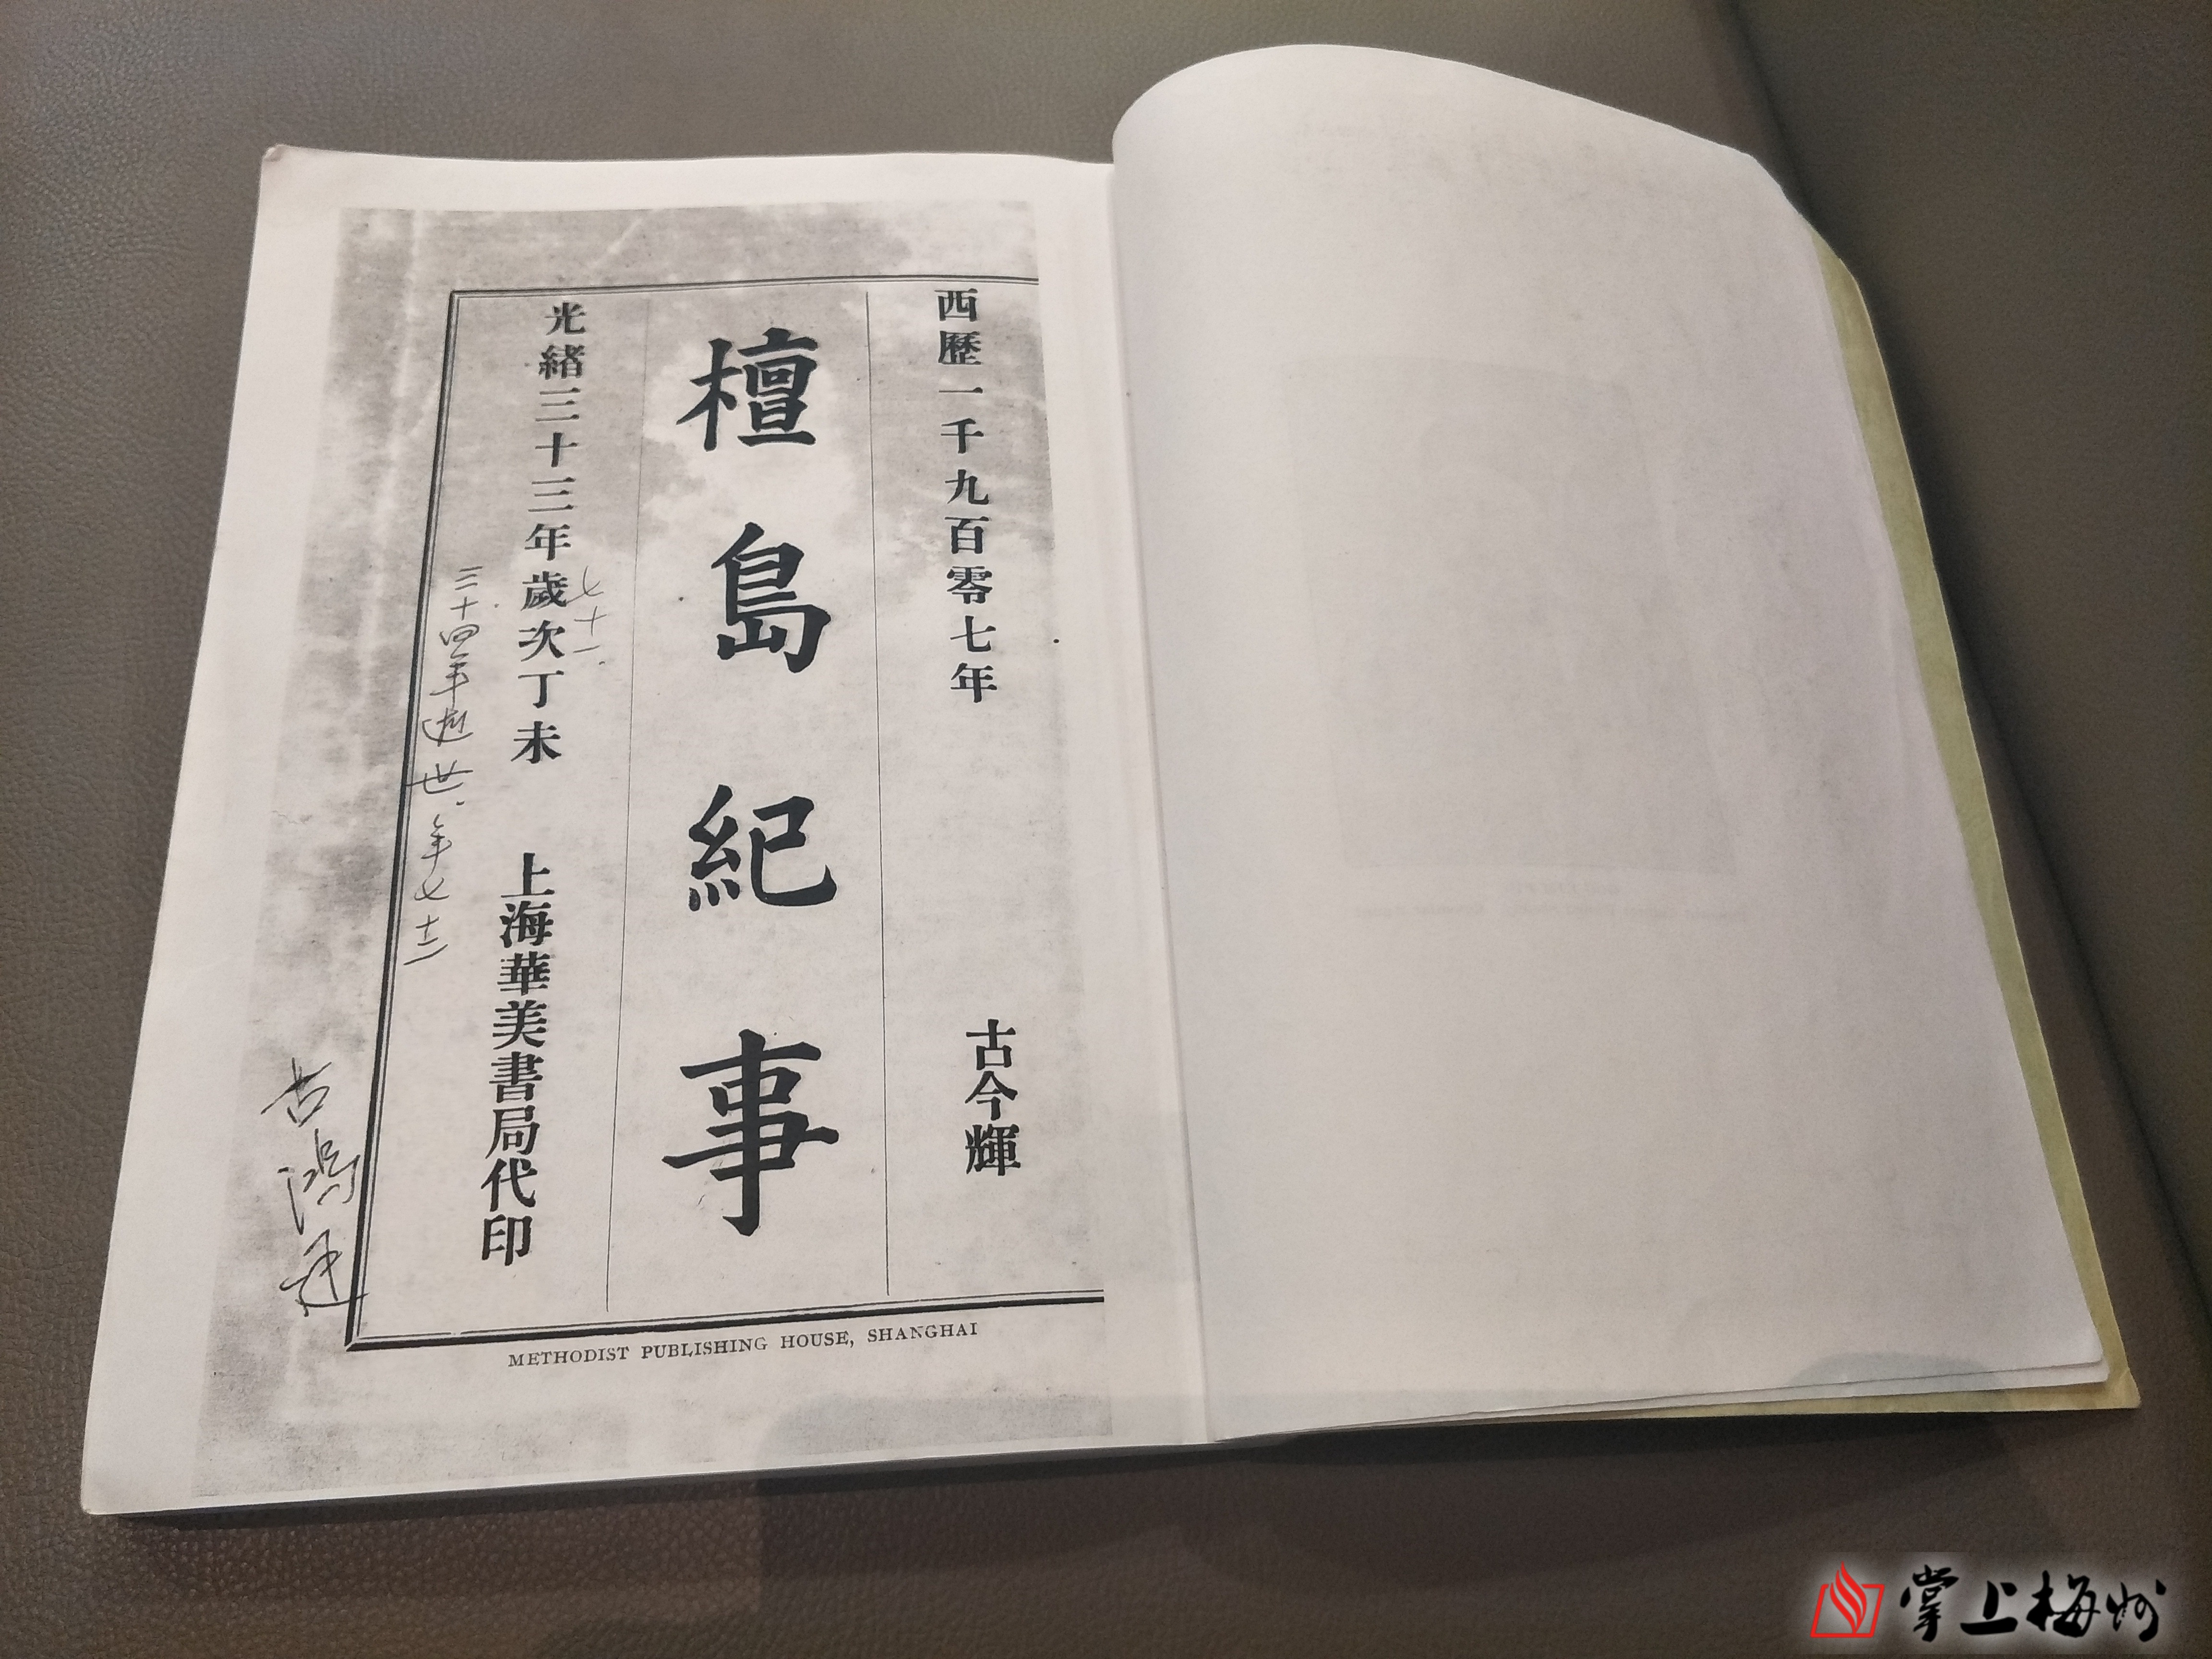 西歷一千九百零七年
古今輝
檀島紀事
光緒三十三年歲次丁未
上海華美書局代印
七十一
三十四年逝世年七十二
METHODIST PUBLISHING HOUSE, SHANGHAI
掌上梅州